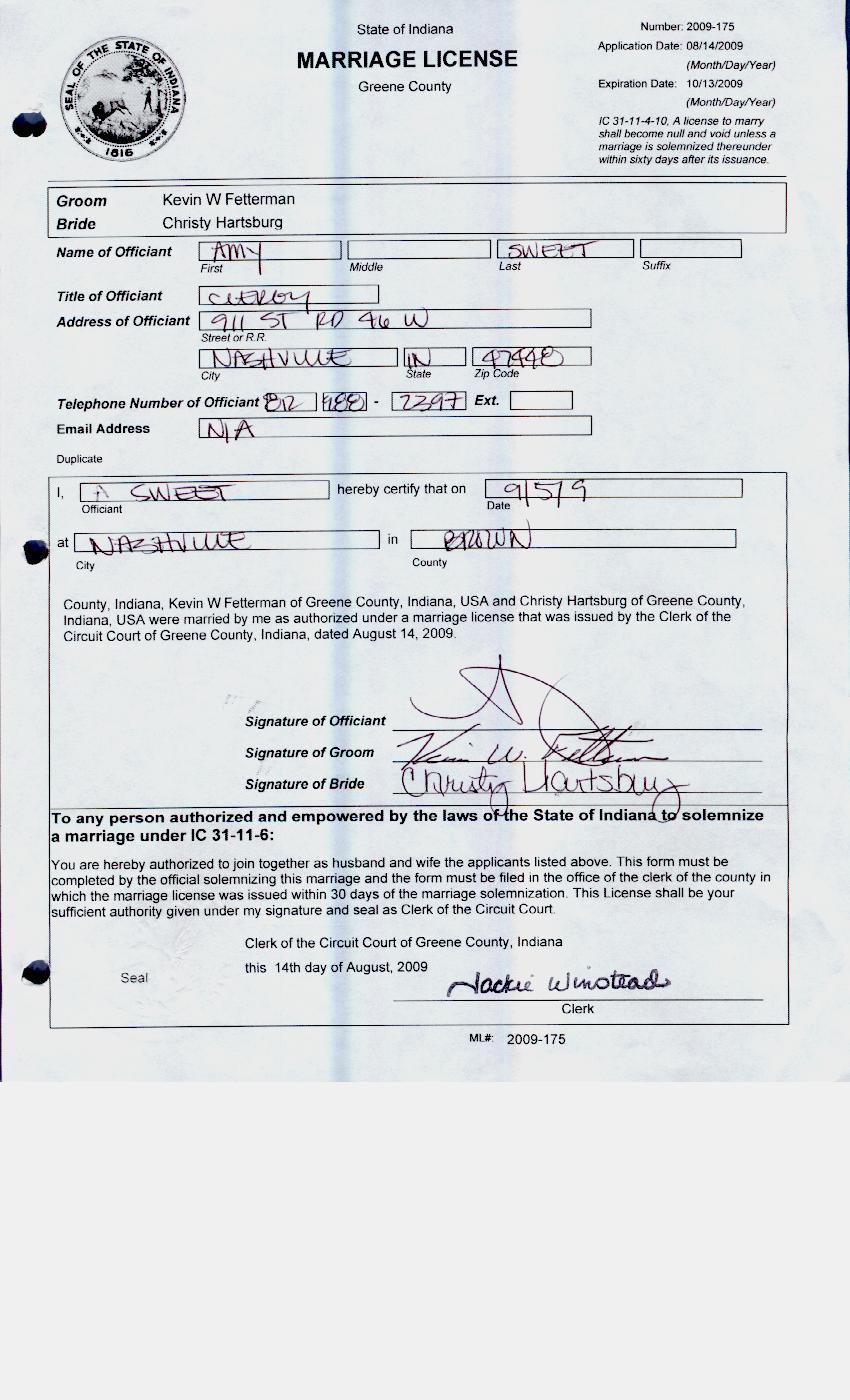 State of Indiana
MARRIAGE LICENSE
Greene County
Number: 2009-175
Application Date: 08/14/2009
(Month/Day/Year)
Expiration Date: 10/13/2009
(Month/Day/Year)
IC 31-11-4-10, A license to marry
shall become null and void unless a
marriage is solemnized thereunder
within sixty days after its issuance.
SEAL OF THE STATE OF INDIANA
1816
Groom Kevin W Fetterman
Bride Christy Hartsburg
Name of Officiant AMY SWEET
First Middle Last Suffix
Title of Officiant CLERGY
Address of Officiant 911 ST RD 46 W
Street or R.R.
NASHVILLE IN 47448
City State Zip Code
Telephone Number of Officiant 812 988 - 2397 Ext.
Email Address N/A
Duplicate
I, A SWEET hereby certify that on 9/5/9
Officiant Date
at NASHVILLE in BROWN
City County
County, Indiana, Kevin W Fetterman of Greene County, Indiana, USA and Christy Hartsburg of Greene County,
Indiana, USA were married by me as authorized under a marriage license that was issued by the Clerk of the
Circuit Court of Greene County, Indiana, dated August 14, 2009.
Signature of Officiant
Signature of Groom Kevin W. Fetterman
Signature of Bride Christy Hartsburg
To any person authorized and empowered by the laws of the State of Indiana to solemnize
a marriage under IC 31-11-6:
You are hereby authorized to join together as husband and wife the applicants listed above. This form must be
completed by the official solemnizing this marriage and the form must be filed in the office of the clerk of the county in
which the marriage license was issued within 30 days of the marriage solemnization. This License shall be your
sufficient authority given under my signature and seal as Clerk of the Circuit Court.
Clerk of the Circuit Court of Greene County, Indiana
this 14th day of August, 2009
Seal
Jackie Winstead
Clerk
ML#: 2009-175